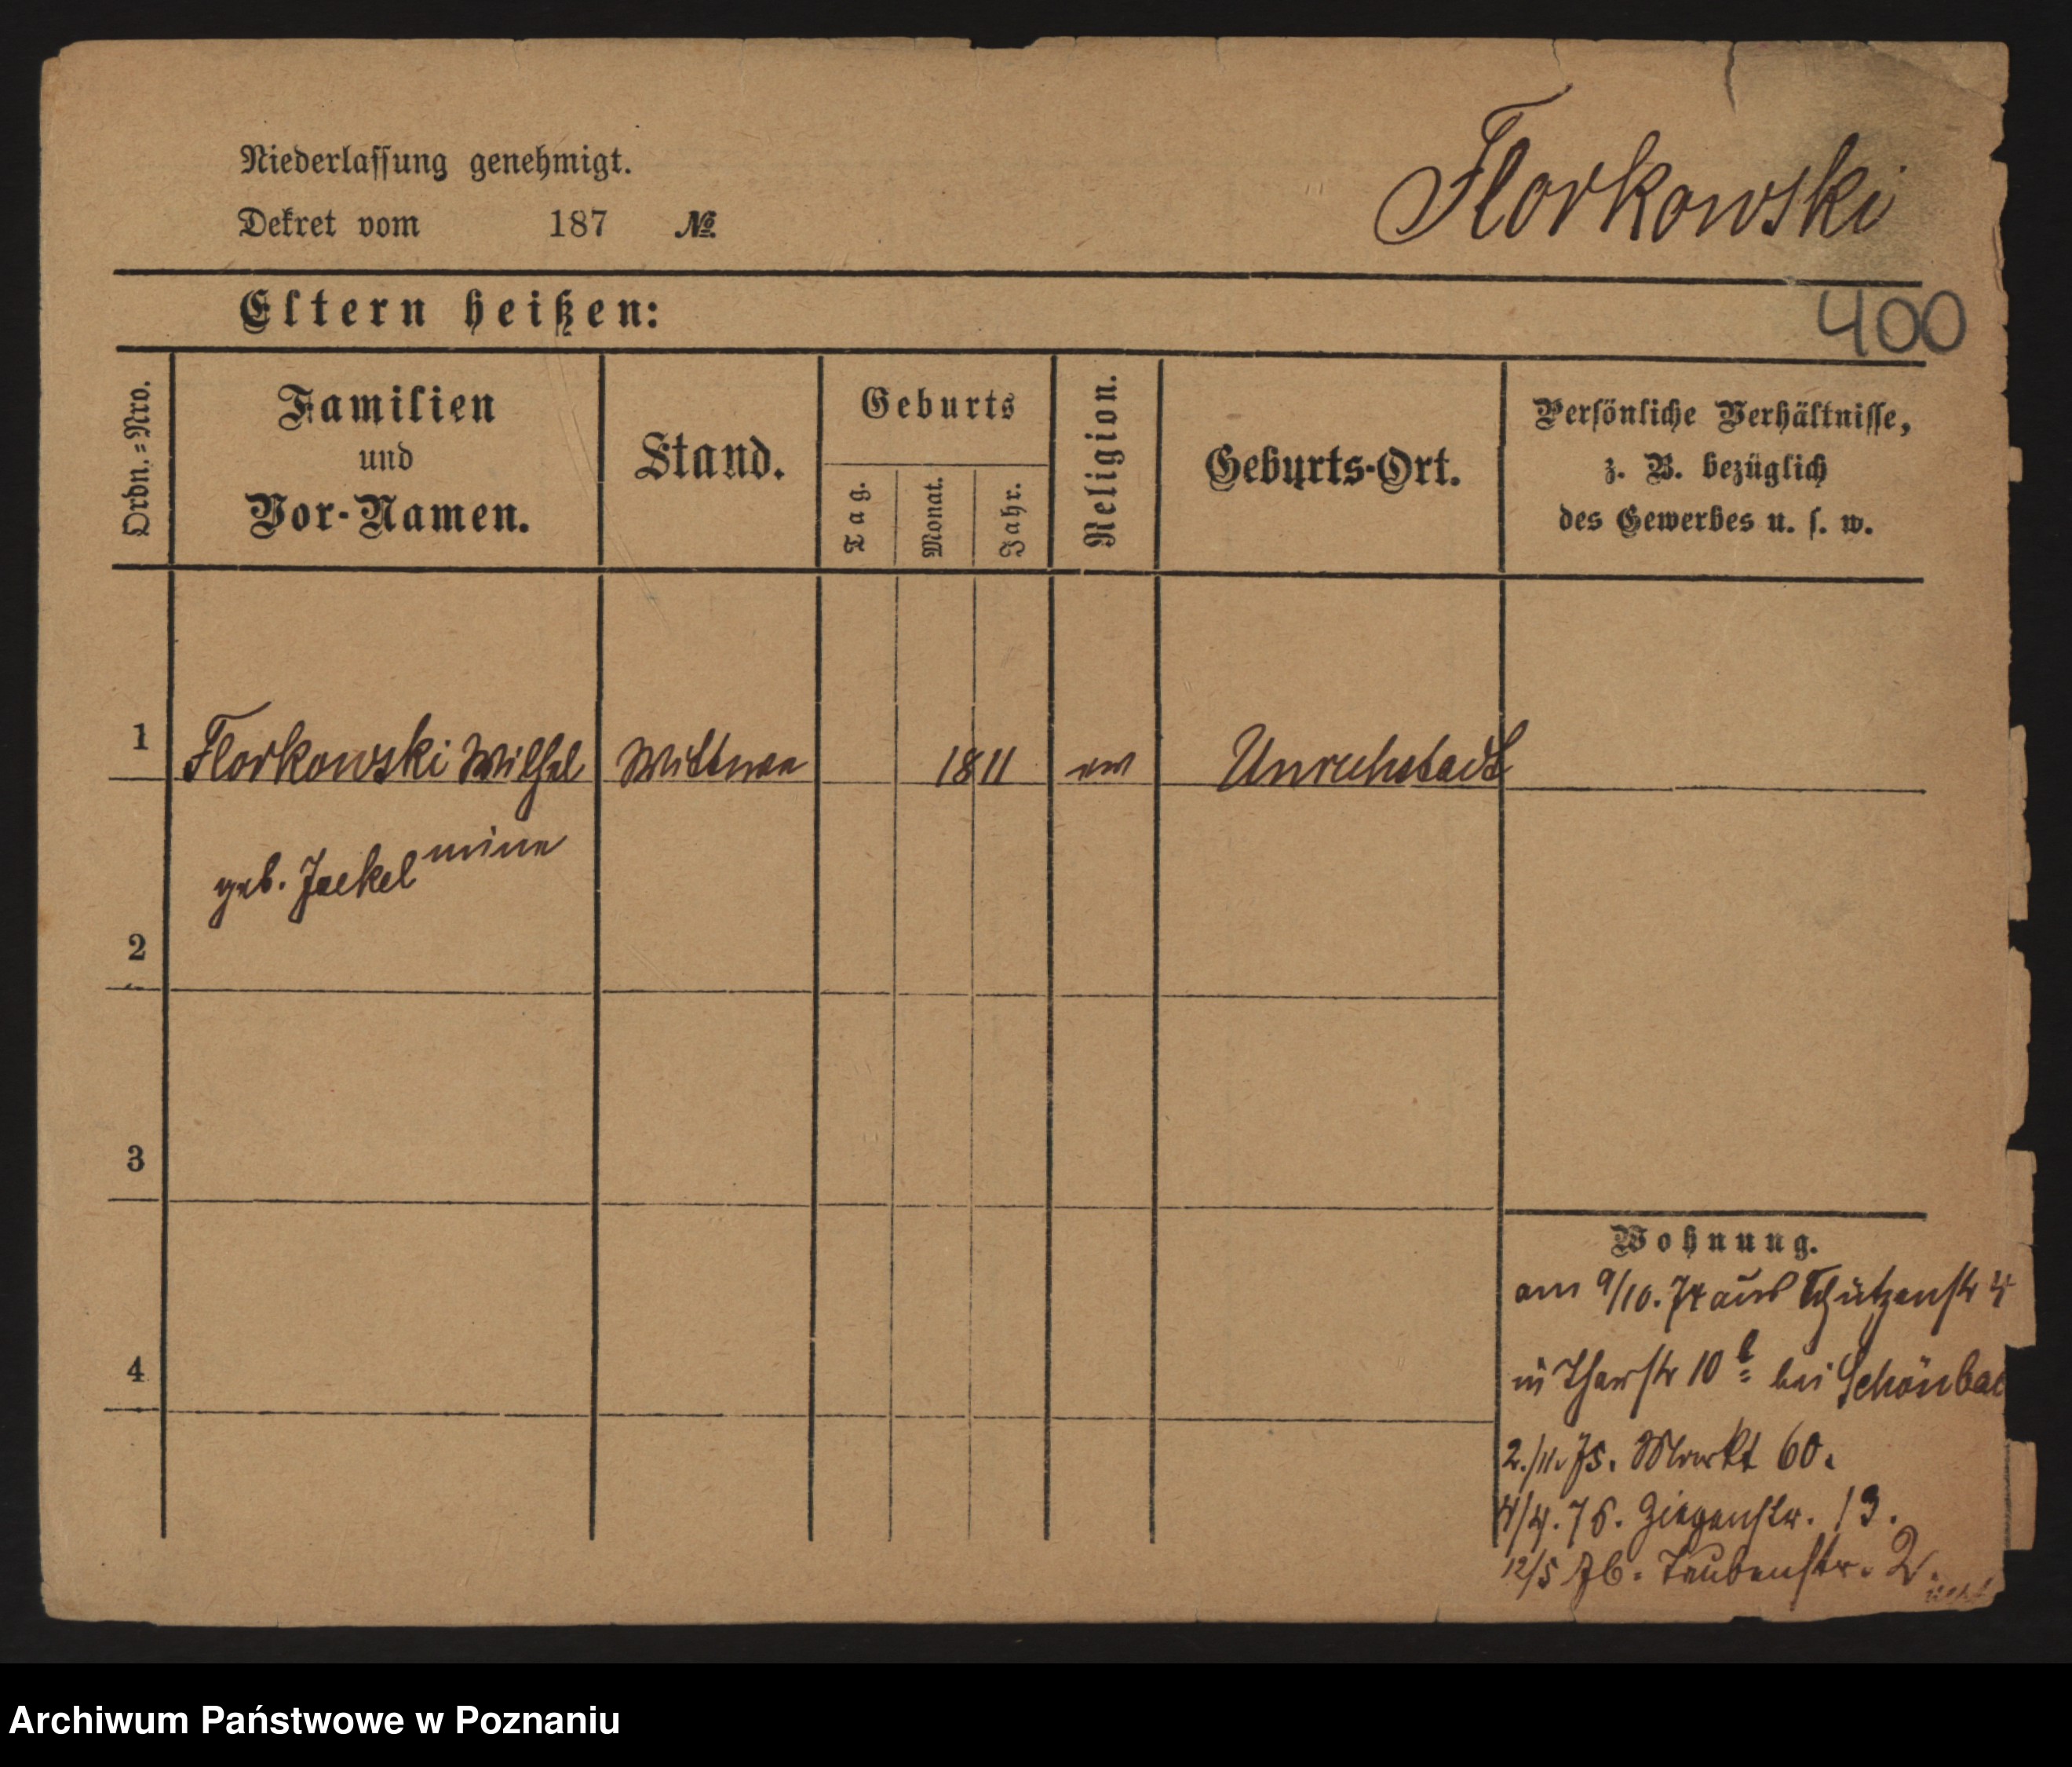 Niederlassung genehmigt.
Dekret vom 187 №.
Florkowski
Eltern heißen:
400
Ordn.=Nro.
Familien
und
Vor-Namen.
Stand.
Geburts
Tag.
Monat.
Jahr.
Religion.
Geburts-Ort.
Persönliche Verhältnisse,
z. B. bezüglich
des Gewerbes u. s. w.
1 Florkowski Wilhel Wittwe 1811 ev Unruhstadt
mine
geb. Jaekel
2
3
4
Wohnung.
am 9/10.74 aus Schützenstr 4
in 10 b bei Schönbac
2./11.75. Markt 60.
4/4.76. Ziegenstr. 13.
12/5 76. Taubenstr. 2.
Archiwum Państwowe w Poznaniu